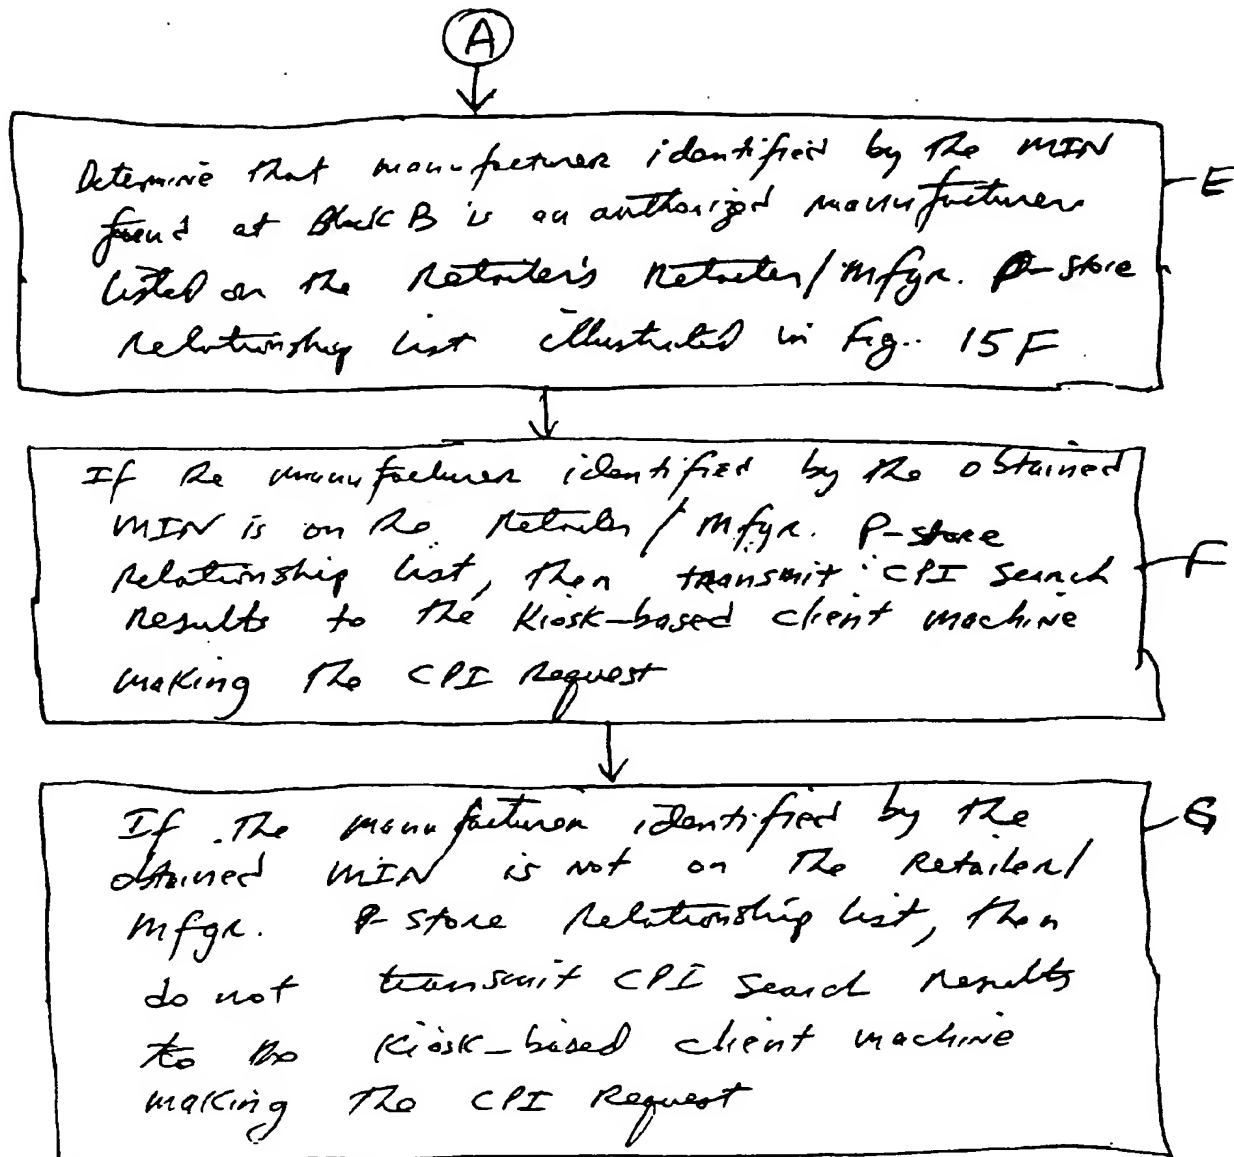 A
Determine that manufacturer identified by the MIN
found at Block B is an authorized manufacturer
listed on the Retailer's Retailer/Mfgr. P-store
Relationship list illustrated in Fig. 15F
E
If the manufacturer identified by the obtained
MIN is on the Retailer/Mfgr. P-store
Relationship list, then transmit CPI search
Results to the Kiosk-based client machine
making the CPI Request
F
If the manufacturer identified by the
obtained MIN is not on the Retailer/
Mfgr. P-store Relationship list, then
do not transmit CPI Search Results
to the Kiosk-based client machine
making the CPI Request
G